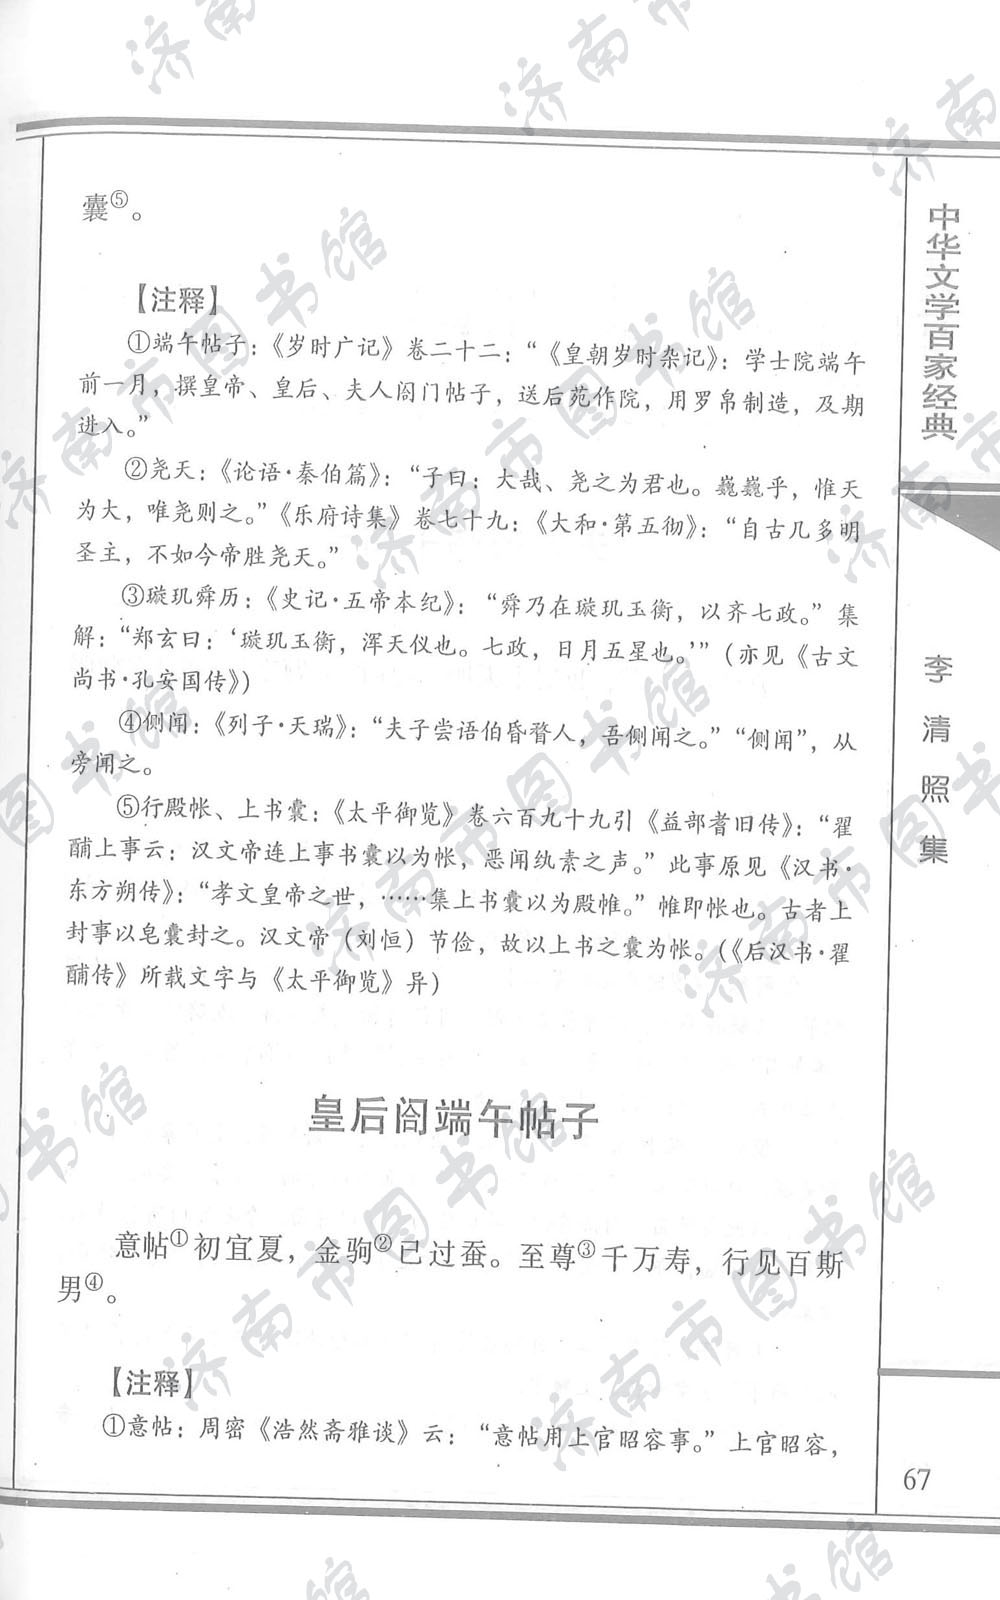 囊⑤。
【注释】
①端午帖子：《岁时广记》卷二十二：“《皇朝岁时杂记》：学士院端午
前一月，撰皇帝、皇后、夫人阁门帖子，送后苑作院，用罗帛制造，及期
进入。”
②尧天：《论语·秦伯篇》：“子曰：大哉、尧之为君也。巍巍乎，惟天
为大，唯尧则之。”《乐府诗集》卷七十九：《大和·第五彻》：“自古几多明
圣主，不如今帝胜尧天。”
③璇玑舜历：《史记·五帝本纪》：“舜乃在璇玑玉衡，以齐七政。”集
解：“郑玄曰：‘璇玑玉衡，浑天仪也。七政，日月五星也。’”（亦见《古文
尚书·孔安国传》）
④侧闻：《列子·天瑞》：“夫子尝语伯昏瞀人，吾侧闻之。”“侧闻”，从
旁闻之。
⑤行殿帐、上书囊：《太平御览》卷六百九十九引《益部耆旧传》：“翟
酺上事云：汉文帝连上事书囊以为帐，恶闻纨素之声。”此事原见《汉书·
东方朔传》：“孝文皇帝之世，……集上书囊以为殿帷。”帷即帐也。古者上
封事以皂囊封之。汉文帝（刘恒）节俭，故以上书之囊为帐。（《后汉书·翟
酺传》所载文字与《太平御览》异）
皇后阁端午帖子
意帖①初宜夏，金驹②已过蚕。至尊③千万寿，行见百斯
男④。
【注释】
①意帖：周密《浩然斋雅谈》云：“意帖用上官昭容事。”上官昭容，
中华文学百家经典
李清照集
67
济南市图书馆